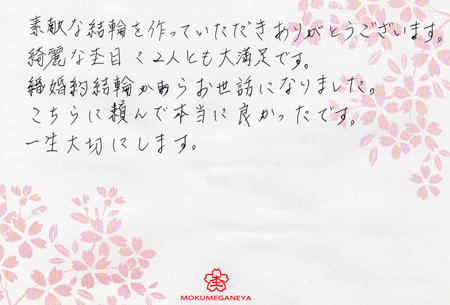 素敵な結輪を作っていただきありがとうございます。
綺麗な杢目で2人とも大満足です。
婚約結輪からお世話になりました。
こちらに頼んで本当に良かったです。
一生大切にします。
杢
MOKUMEGANEYA